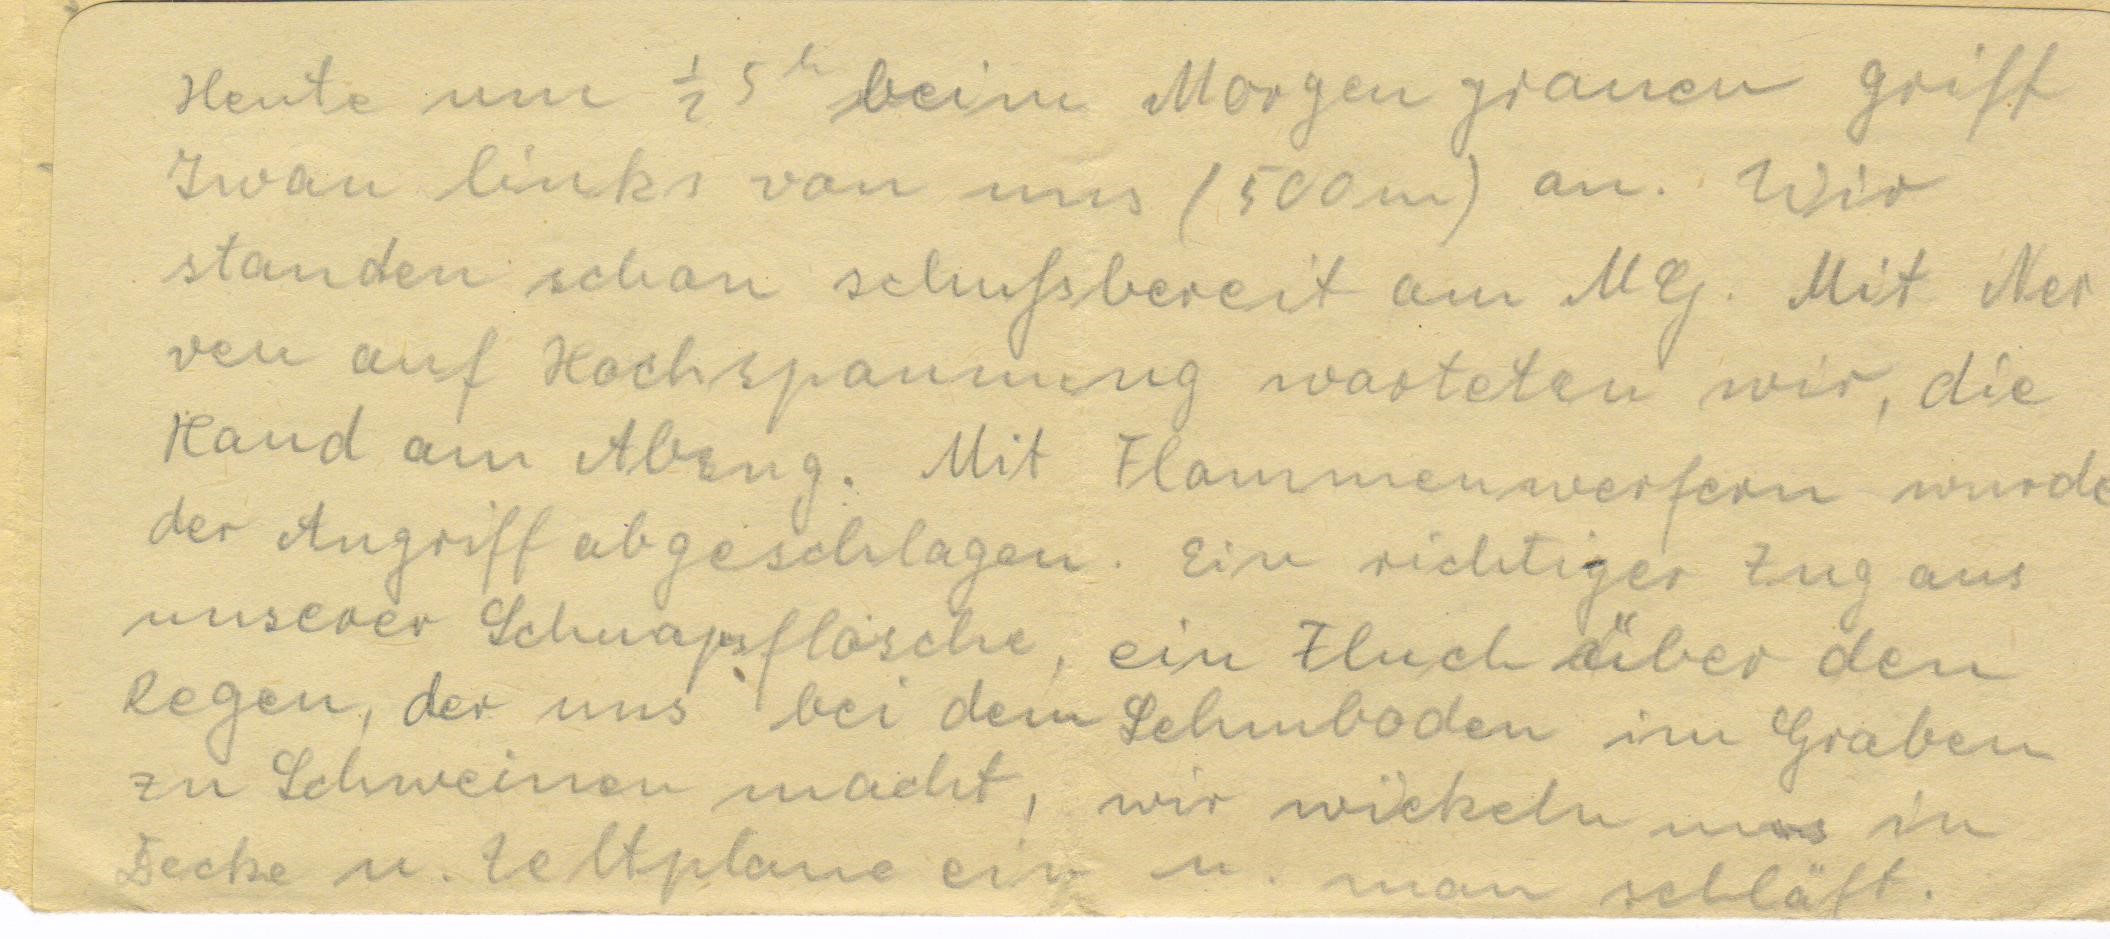 Heute um ½ 5 h beim Morgengrauen griff
Iwan links von uns (500m) an. Wir
standen schon schußbereit am MG. Mit Ner
ven auf Hochspannung warteten wir, die
Hand am Abzug. Mit Flammenwerfern wurde
der Angriff abgeschlagen. Ein richtiger Zug aus
unserer Schnapsflasche, ein Fluch über den
Regen, der uns bei dem Lehmboden im Graben
zu Schweinen macht, wir wickeln uns in
Decke u. Zeltplane ein u. man schläft.